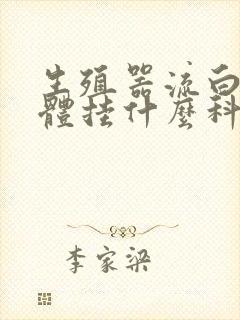 生殖器流白
體挂什麼科
李家梁